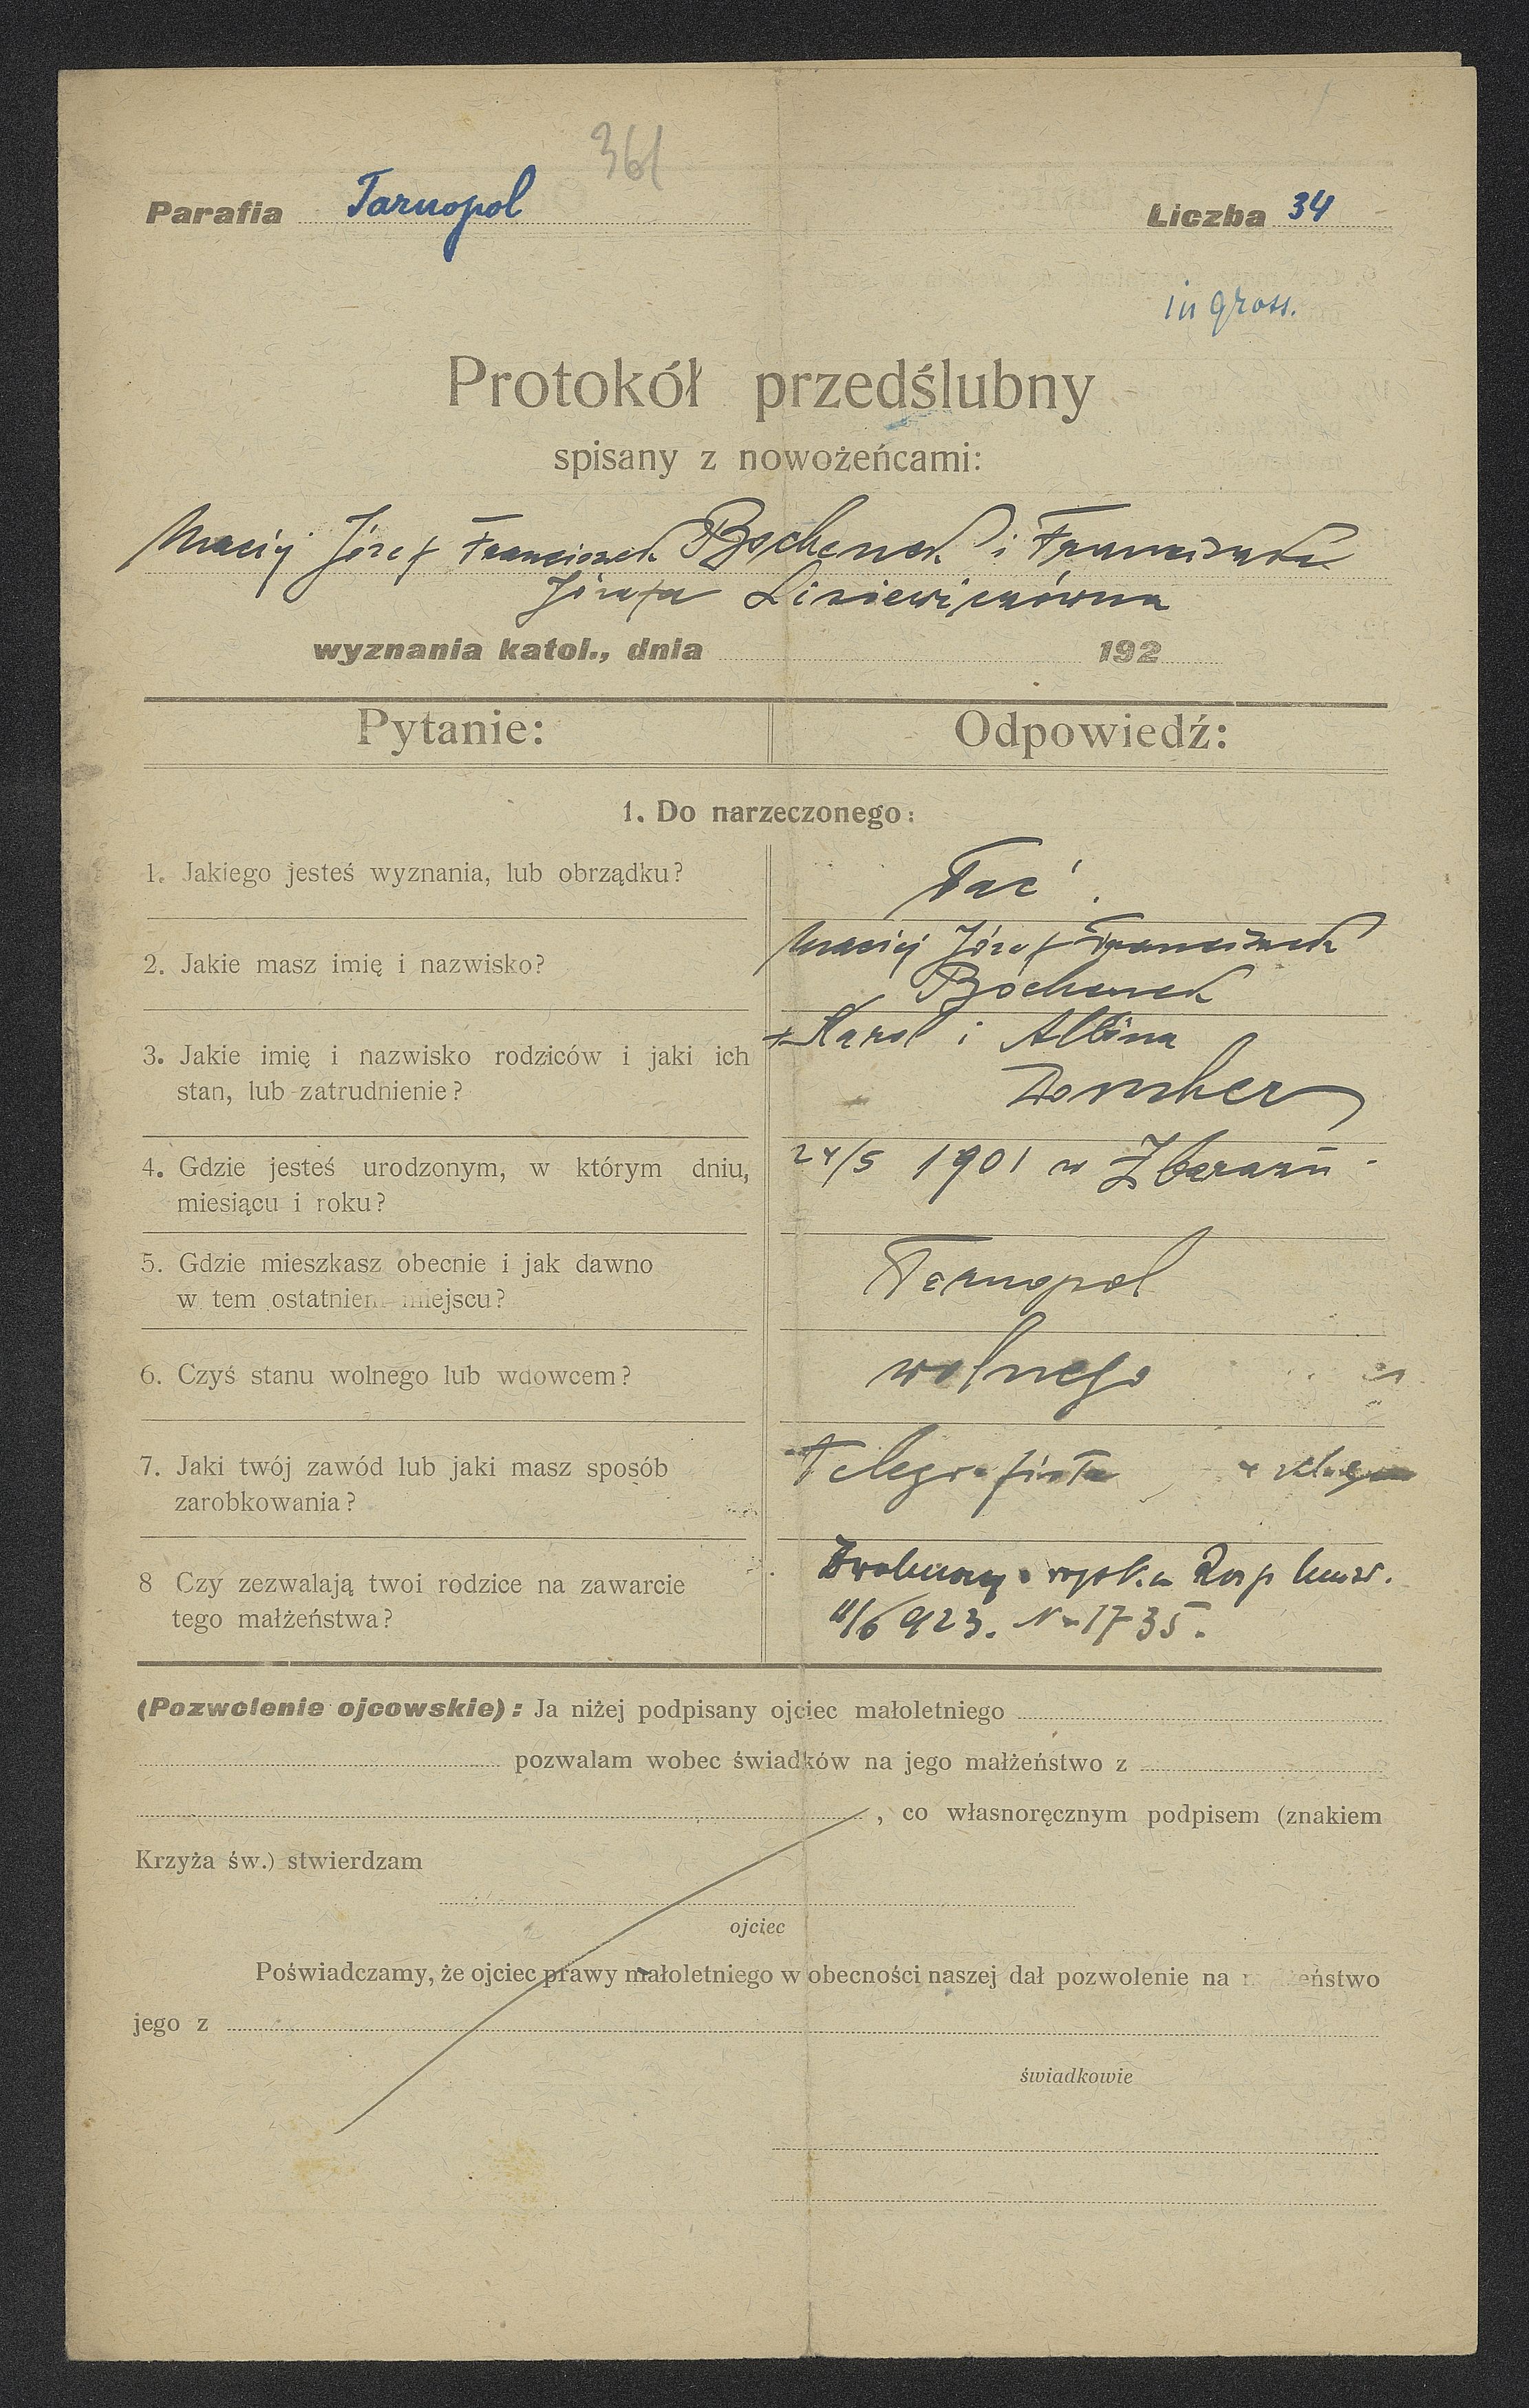 361
Parafia Tarnopol Liczba 34
in gross.
Protokół przedślubny
spisany z nowożeńcami:
Maciej Józef Franciszek Bochenek i Franciszka
Józefa Lisiewiczówna
wyznania katol., dnia 192
Pytanie: Odpowiedź:
1. Do narzeczonego:
1. Jakiego jesteś wyznania, lub obrządku? łac.
2. Jakie masz imię i nazwisko? Maciej Józef Franciszek
Bochenek
3. Jakie imię i nazwisko rodziców i jaki ich + Karol i Albina
stan, lub zatrudnienie?
4. Gdzie jesteś urodzonym, w którym dniu, 24/5 1901 w Zbarażu
miesiącu i roku?
5. Gdzie mieszkasz obecnie i jak dawno Tarnopol
w tem ostatniem miejscu?
6. Czyś stanu wolnego lub wdowcem? wolnego
7. Jaki twój zawód lub jaki masz sposób Telegrafista
zarobkowania?
8 Czy zezwalają twoi rodzice na zawarcie
tego małżeństwa? 11/6 923. No 1735.
(Pozwolenie ojcowskie): Ja niżej podpisany ojciec małoletniego
pozwalam wobec świadków na jego małżeństwo z
, co własnoręcznym podpisem (znakiem
Krzyża św.) stwierdzam
ojciec
Poświadczamy, że ojciec prawy małoletniego w obecności naszej dał pozwolenie na małżeństwo
jego z
świadkowie